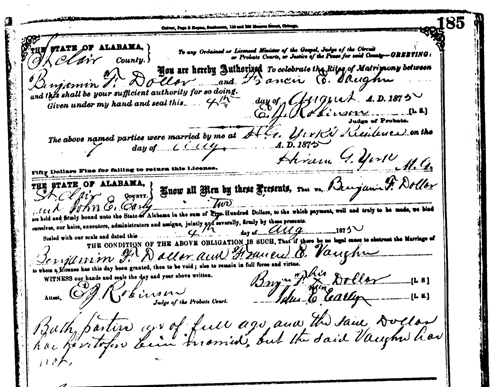 185
Culver, Page & Hoyne, Stationers, Chicago.
THE STATE OF ALABAMA,
St Clair County.
To any Ordained or Licensed Minister of the Gospel, Judge of the Circuit
or Probate Courts, or Justice of the Peace for said County—GREETING:
You are hereby Authorized To celebrate the Rites of Matrimony between
Benjamin F. Dollar and Francis E. Vaughn
and this shall be your sufficient authority for so doing.
Given under my hand and seal this 4th day of August A. D. 1875
E. J. Robinson [L. S.]
Judge of Probate.
The above named parties were married by me at H G. York's Residence on the
7 day of Aug A. D. 1875
Hiram G. York M. G.
Fifty Dollars Fine for failing to return this License.
THE STATE OF ALABAMA,
St. Clair County
Know all Men by these Presents, That we, Benjamin F. Dollar
and John E. Early
are held and firmly bound unto the State of Alabama in the sum of Two Hundred Dollars, to the which payment, well and truly to be made, we bind
ourselves, our heirs, executors, administrators and assigns, jointly and severally, firmly by these presents.
Sealed with our seals and dated this 4th day of Aug 1875
THE CONDITION OF THE ABOVE OBLIGATION IS SUCH, That if there be no legal cause to obstruct the Marriage of
Benjamin F. Dollar and Francis E. Vaughn
to whom a License has this day been granted, then to be void; else to remain in full force and virtue.
WITNESS our hands and seals the day and year above written.
Benj F. his Dollar [L. S.]
Attest, E J Robinson
Judge of the Probate Court.
John E Early [L. S.]
Both parties are of full age, and the said Dollar
has heretofore been married, but the said Vaughn has
not.